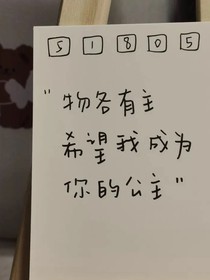 5 1 8 0 5
"物各有主
希望我成为
你的公主"